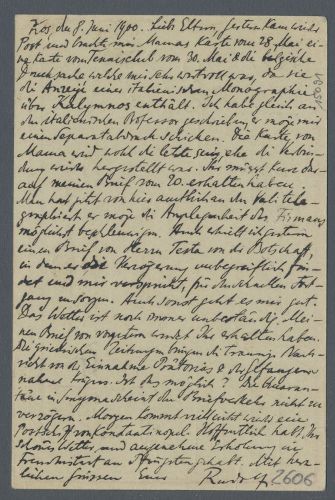 Kos, den 8. Juni 1900. Liebe Eltern, gestern kam wieder
Post und brachte mir Mamas Karte vom 28. Mai
Karte vom Tennisclub vom 30. Mai & die
Drucksache welche mir sehr wertvoll war, da sie
die Anzeige einer italienischen Monographie
über Kalymnos enthält. Ich habe gleich an
den italienischen Professor geschrieben er möge mir
einen Separatabdruck schicken. Die Karte von
Mama wird wohl die letzte sein, ehe die Verbin-
dung wieder hergestellt war. Ihr müsst kurz dar-
auf meinen Brief vom 20. erhalten haben.
Man hat jetzt von hier amtlich an den Vali tele-
graphiert er möge die Angelegenheit des Firmans
möglichst beschleunigen. Auch erhielt ich gestern
einen Brief von Herrn Testa von der Botschaft,
in dem er die Verzögerung unbegreiflich fin-
det und mir verspricht, für schnellen Fort-
gang zu sorgen. Auch sonst geht es mir gut.
Das Wetter ist noch immer unbeständig. Mei-
nen Brief von vorgestern werdet Ihr erhalten haben.
Die griechischen Zeitungen bringen die traurige Nach-
richt von der Einnahme Pretorias & der Gefangen-
nahme Krügers. Ist das möglich? Die Quaran-
täne in Smyrna scheint den Briefverkehr nicht zu
verzögern. Morgen kommt vielleicht wieder ein
Postschiff von Constantinopel. Hoffentlich habt Ihr
schönes Wetter und angenehme Erholung in
an Pfingsten gehabt. Mit herz-
lichen Grüssen Euer Rudolf
2606